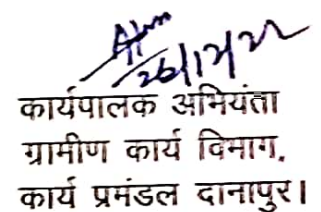 26/12/22
कार्यपालक अभियंता
ग्रामीण कार्य विभाग,
कार्य प्रमंडल दानापुर।